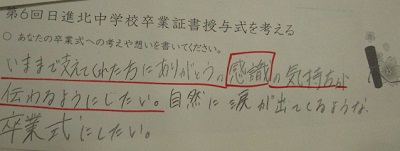 第6回日進北中学校卒業証書授与式を考える
○ あなたの卒業式への考えや想いを書いてください。
いままで支えてくれた方にありがとうの感識の気持ちが
伝わるようにしたい。自然に涙が出てくるような
卒業式にしたい。